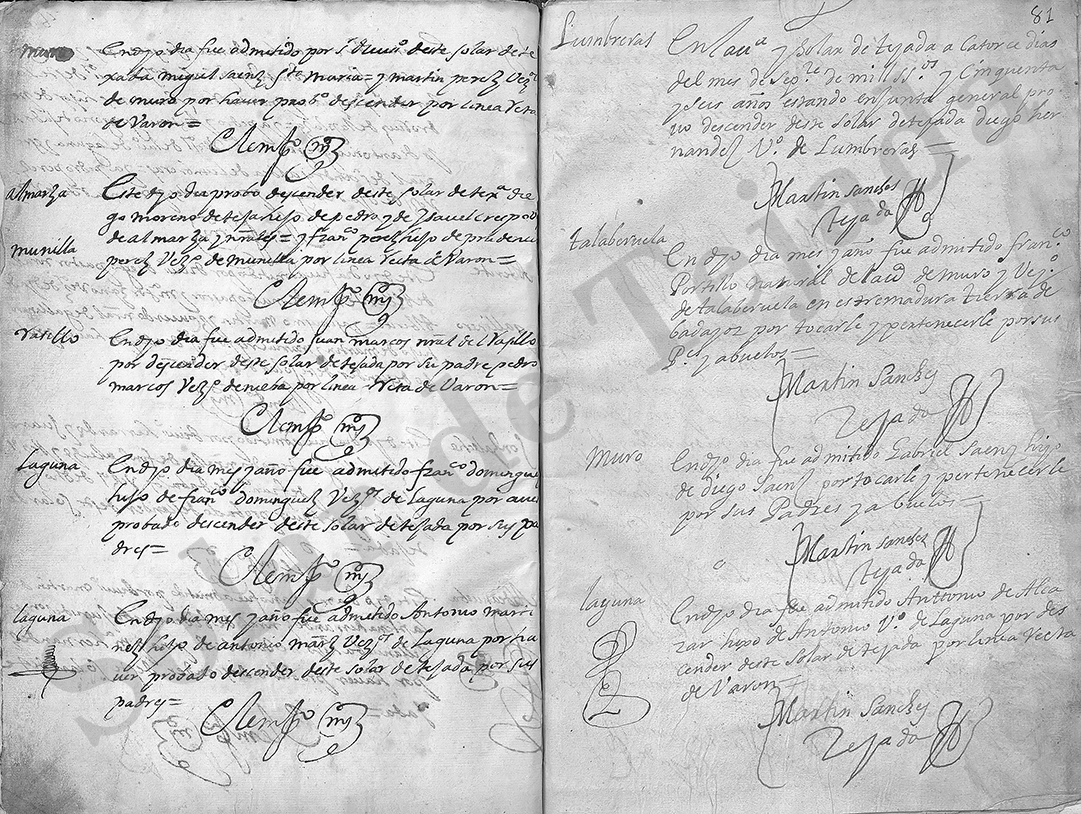 muro
En dho dia fue admitido por deste solar dete
xada miguel saenz sta maria = y martin perez Vezos
de muro por hauer probo descender por linea recta
de Varon =
Clempo
almarza
Este dho dia probo descender deste solar de texa die
go moreno de texa hijo de pedro y de ysauel crespo
de almarza y nrales = y franco perez hijo de prudencio
munilla
perez Vezos de munilla por linea recta de Varon =
Clempo
Vasillo
En dho dia fue admitido Juan marcos nral del Vasillo
por descender deste solar de tejada por su padre pedro
marcos Vezo de nieba por linea Recta de Varon =
Clempo
Laguna
En dho dia mes y año fue admitido franco domingue
hijo de franco Dominguez Vezos de Laguna por auer
probado descender deste solar de tejada por sus pa
dres =
Clempo
laguna
En dho dia mes y año fue admitido Antonio marti
nez hijo de antonio mrnz Vezos de Laguna por ha
uer probado descender deste solar de tejada por sus
padres =
Clempo
81
Lumbreras
En la cua y Solar de tejada a Catorce dias
del mes de Sepre de mill y Cinquenta
y seis años estando en Junta general pro
uo descender deste solar de tejada diego her
nandez Vo de Lumbreras =
Martin sanches
tejado
talaberuela
En dho dia mes y año fue admitido franco
Portillo natural de la cua de muro y Vezo
de talaberuela en estremadura tierra de
badajoz por tocarle y pertenecerle por sus
Ps y abuelos =
Martin Sanches
Tejado
Muro
En dho dia fue admitido Gabriel Saenz hijo
de diego Saenz por tocarle y pertenecerle
por sus Padres y abuelos =
Martin sanches
tejado
laguna
En dho dia fue admitido Anttonio de Alca
zar hijo de Antonio Vo de Laguna por des
cender deste solar de tejada por linea recta
de Varon
Martin Sanches
Tejado
Solar de Tejada